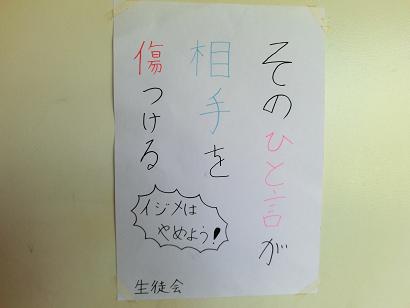 そのひと言が
相手を
傷つける
イジメは
やめよう!
生徒会